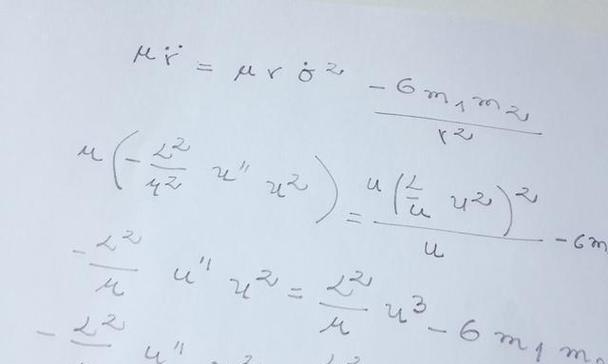 μ r̈ = μ r σ̇² - G m₁ m₂ / r²
μ ( - L² / μ² u'' u² ) = μ ( L / μ u² )² / u - G m
- L² / μ u'' u² = L² / μ u³ - G m₁ m
- L² u'' L²